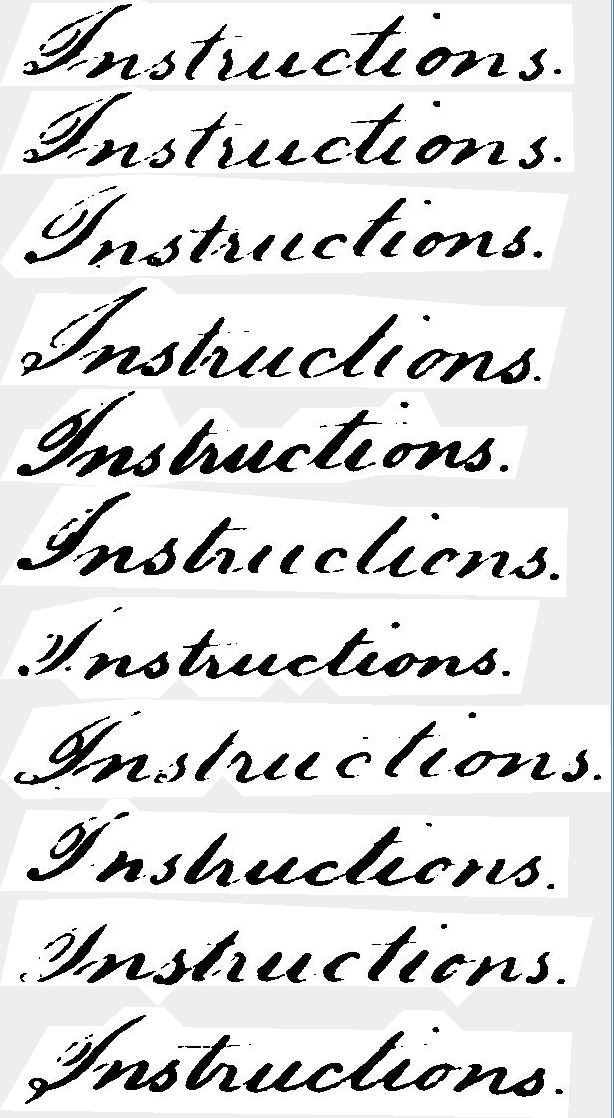 Instructions.
Instructions.
Instructions.
Instructions.
Instructions.
Instructions.
Instructions.
Instructions.
Instructions.
Instructions.
Instructions.